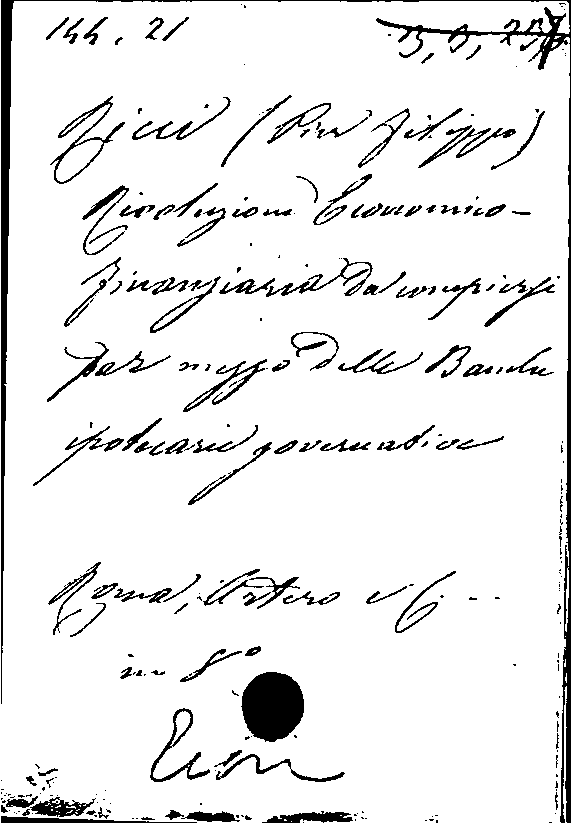 144. 21
B, D, 23
Ricci (Pier Filippo)
Rivoluzione Economico-
finanziaria da compiersi
per mezzo delle Banche
ipotecarie governative
Roma, Artero e C. --
in 8°
Econ